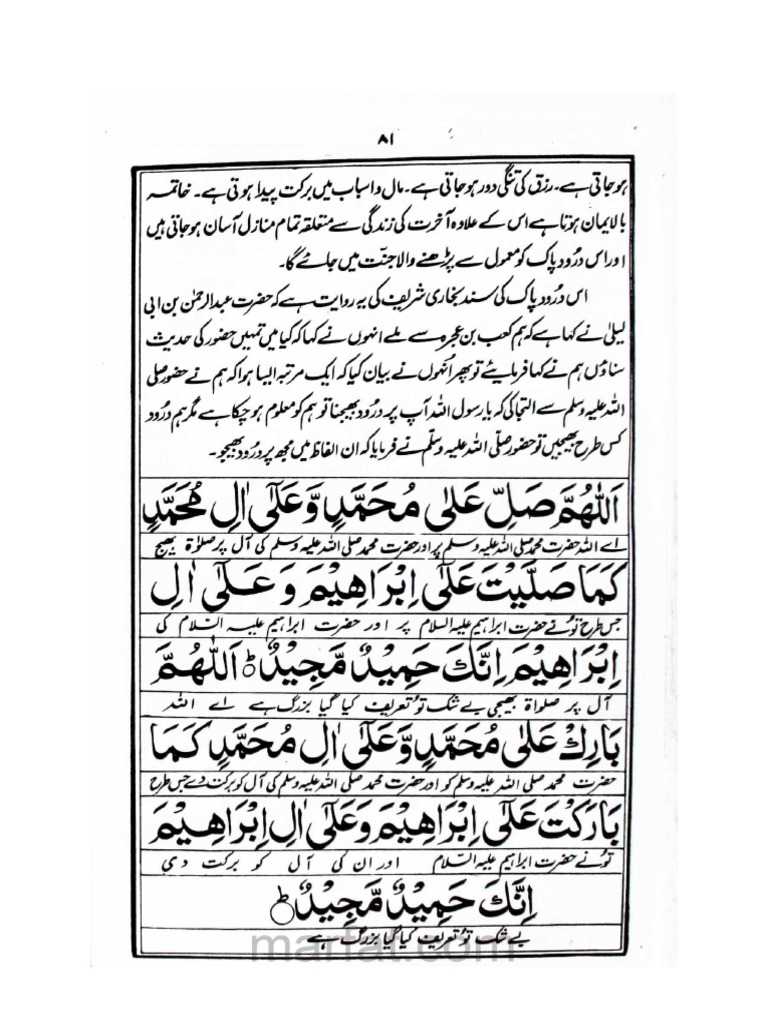 ۸۱
ہو جاتی ہے۔ رزق کی تنگی دور ہو جاتی ہے۔ مال و اسباب میں برکت پیدا ہوتی ہے۔ خاتمہ
بالایمان ہوتا ہے اس کے علاوہ آخرت کی زندگی سے متعلقہ تمام منازل آسان ہو جاتی ہیں
اور اس دُرود پاک کو معمول سے پڑھنے والا جنّت میں جائے گا۔
اس دُرود پاک کی سند بخاری شریف کی یہ روایت ہے کہ حضرت عبدالرحمٰن بن ابی
لیلیٰ نے کہا ہے کہ ہم کعب بن عجرہ سے ملے انہوں نے کہا کہ کیا میں تمہیں حضور کی حدیث
سناؤں ہم نے کہا فرمایئے تو پھر اُنھوں نے بیان کیا کہ ایک مرتبہ ایسا ہوا کہ ہم نے حضور صلی
اللہ علیہ وسلم سے التجا کی کہ یا رسول اللہ آپ پر دُرود بھیجنا تو ہم کو معلوم ہو چکا ہے مگر ہم دُرود
کس طرح بھیجیں تو حضور صلّی اللہ علیہ وسلّم نے فرمایا کہ ان الفاظ میں مجھ پر دُرود بھیجو۔
اَللّٰهُمَّ صَلِّ عَلٰى مُحَمَّدٍ وَّعَلٰٓى اٰلِ مُحَمَّدٍ
اے اللہ حضرت محمد صلی اللہ علیہ وسلم پر اور حضرت محمد صلی اللہ علیہ وسلم کی آل پر صلوٰۃ بھیج
كَمَا صَلَّيْتَ عَلٰٓى اِبْرَاهِيْمَ وَ عَلٰٓى اٰلِ
جس طرح تو نے حضرت ابراہیم علیہ السلام پر اور حضرت ابراہیم علیہ السّلام کی
اِبْرَاهِيْمَ اِنَّكَ حَمِيْدٌ مَّجِيْدٌ ؕ اَللّٰهُمَّ
آل پر صلواۃ بھیجی بے شک تو تعریف کیا گیا بزرگ ہے اے اللہ
بَارِكْ عَلٰى مُحَمَّدٍ وَّعَلٰٓى اٰلِ مُحَمَّدٍ كَمَا
حضرت محمد صلی اللہ علیہ وسلم کو اور حضرت محمد صلی اللہ علیہ وسلم کی آل کو برکت دے جس طرح
بَارَكْتَ عَلٰٓى اِبْرَاهِيْمَ وَعَلٰٓى اٰلِ اِبْرَاهِيْمَ
تو نے حضرت ابراہیم علیہ السّلام اور ان کی آل کو برکت دی
اِنَّكَ حَمِيْدٌ مَّجِيْدٌ ؕ
بے شک تو تعریف کیا گیا بزرگ ہے
marfat.com